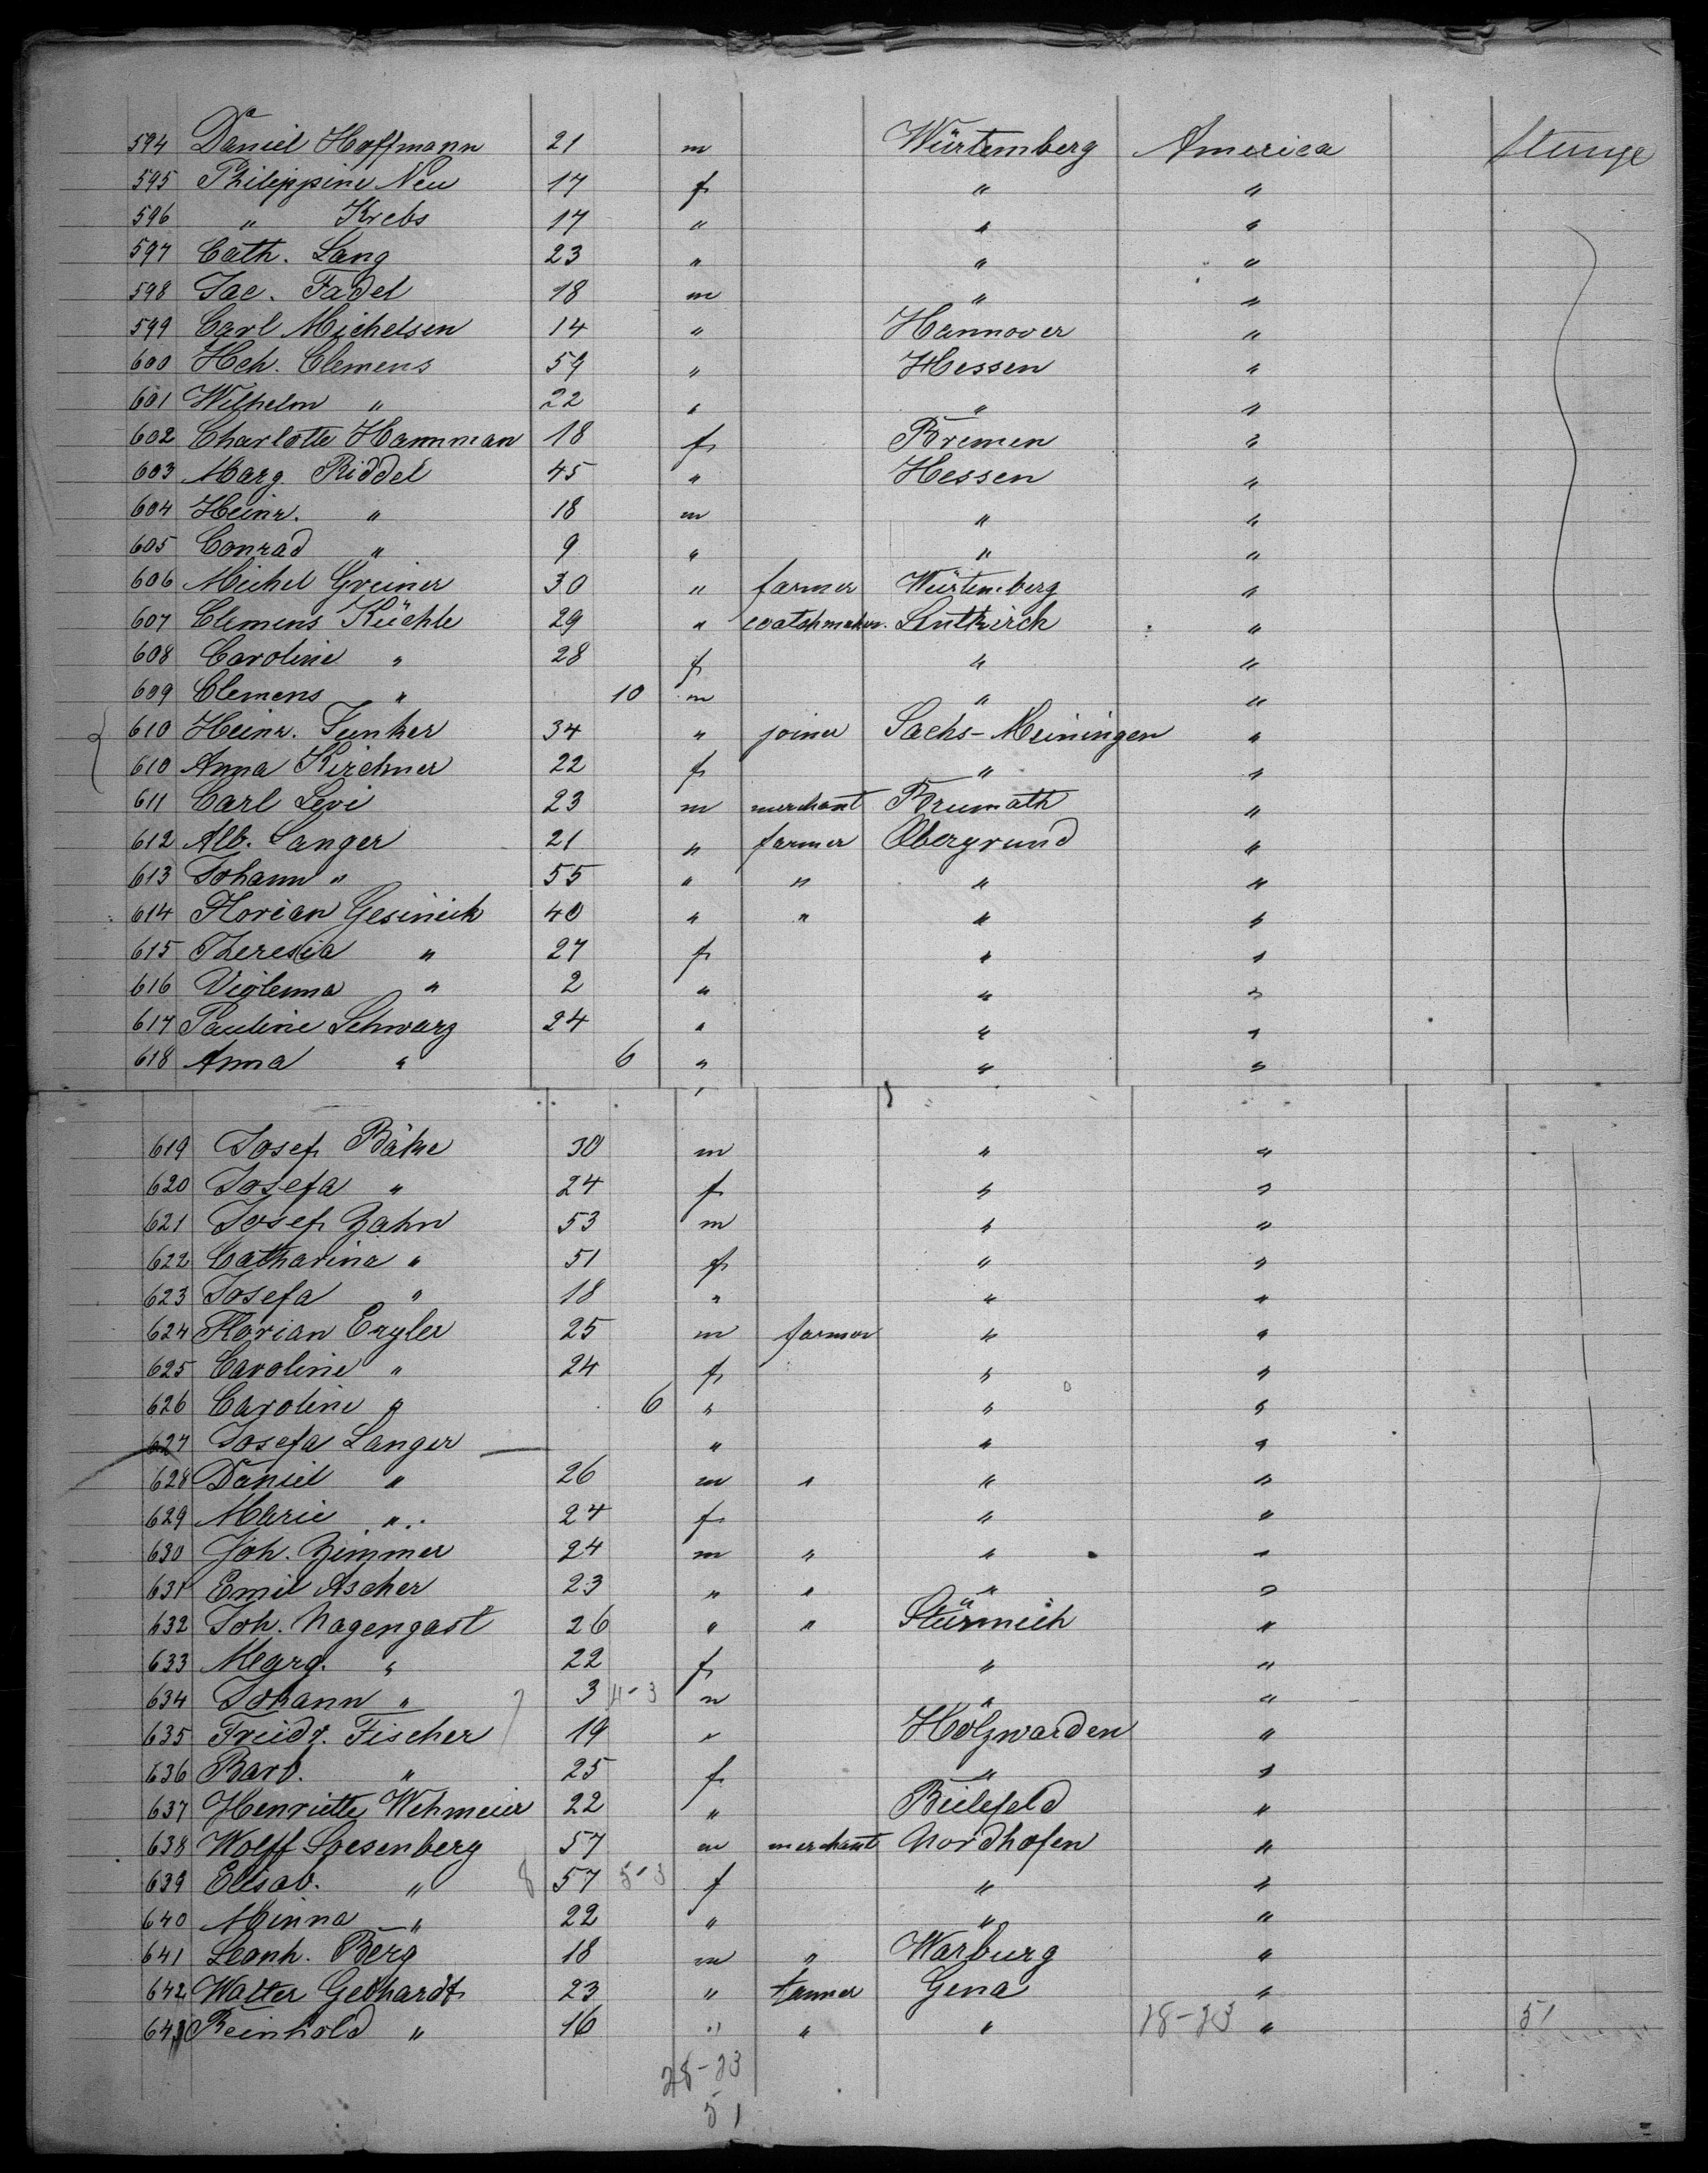 594 Daniel Hoffmann 21 m Würtemberg America
595 Philippine Neu 17 f " "
596 " Krebs 17 " " "
597 Cath. Lang 23 " " "
598 Jac. Fadel 18 m " "
599 Carl Michelsen 14 " Hannover "
600 Hch. Clemens 59 " Hessen "
601 Wilhelm " 22 " " "
602 Charlotte Hamman 18 f Bremen "
603 Marg. Riddel 45 " Hessen "
604 Heinr. " 18 m " "
605 Conrad " 9 " " "
606 Michel Greiner 30 " farmer Würtemberg "
607 Clemens Küchle 29 " watchmaker. Leutkirch "
608 Caroline " 28 f " "
609 Clemens " 10 m " "
610 Heinr. Junker 34 " joiner Sachs-Meiningen "
610 Anna Kirchner 22 f " "
611 Carl Levi 23 m merchant Brumath "
612 Alb. Langer 21 " farmer Obergrund "
613 Johann " 55 " " " "
614 Florian Gesinick 40 " " " "
615 Theresia " 27 f " "
616 Viglenna " 2 " " "
617 Pauline Schwarz 24 " " "
618 Anna " 6 " " "
619 Josef Bäke 30 m " "
620 Josefa " 24 f " "
621 Josef Zahn 53 m " "
622 Catharina " 51 f " "
623 Josefa " 18 " " "
624 Florian Engler 25 m farmer " "
625 Caroline " 24 f " "
626 Caroline " 6 " " "
627 Josefa Langer — " " "
628 Daniel " 26 m " " "
629 Marie " 24 f " "
630 Joh. Zimmer 24 m " " "
631 Emil Ascher 23 " " " "
632 Joh. Nagengast 26 " " "
633 Marg. " 22 f " "
634 Johann " 3 4-3 m " "
635 Friedr. Fischer 19 " Holzwarden "
636 Barb. " 25 f " "
637 Henriette Wehmeier 22 " Bielefeld "
638 Wolff Loesenberg 57 m merchant Nordhofen "
639 Elisab. " 8 57 5-3 f " "
640 Minna " 22 " " "
641 Leonh. Berg 18 m " Warburg "
642 Walter Gebhardt 23 " tanner Gena "
643 Reinhold " 16 " " " 18-23 " 51
28-23
51